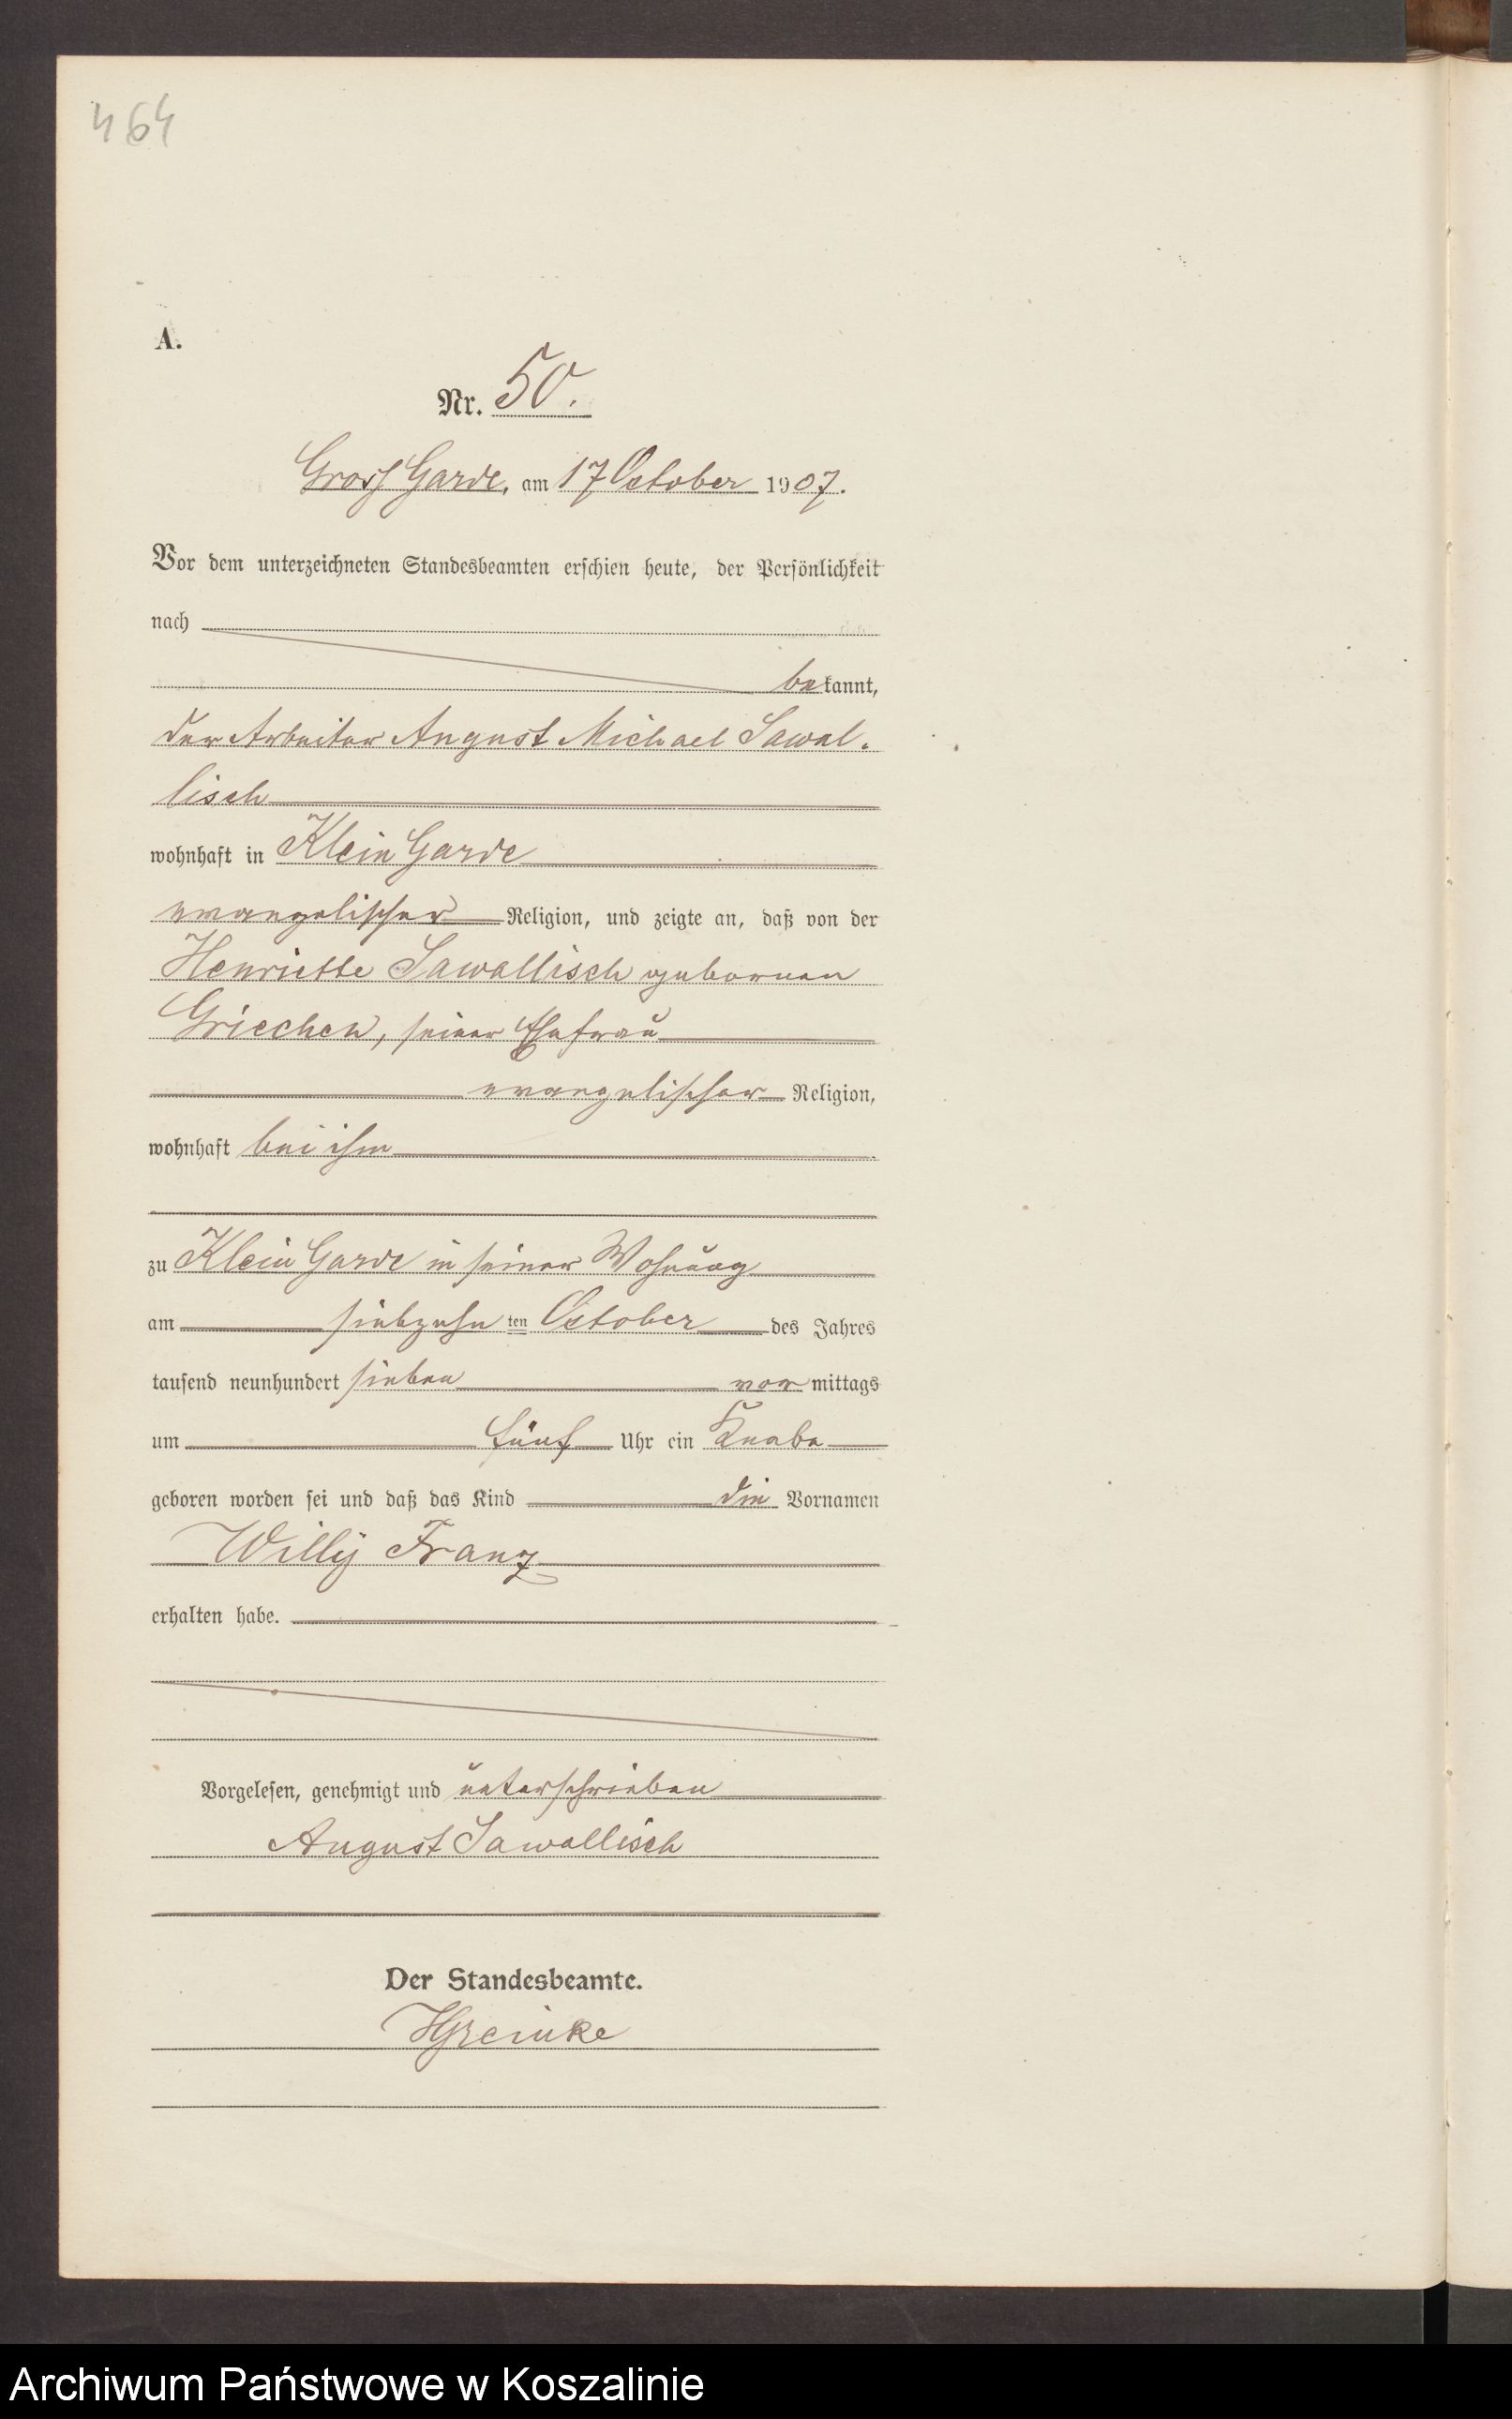 464
A.
Nr. 50.
Gross Garde, am 17 October 1907.
Vor dem unterzeichneten Standesbeamten erschien heute, der Persönlichkeit
nach
bekannt,
der Arbeiter August Michael Sawal-
lisch
wohnhaft in Klein Garde
evangelischer Religion, und zeigte an, daß von der
Henriette Sawallisch geborenen
Griechen, seiner Ehefrau
evangelischer Religion,
wohnhaft bei ihm
zu Klein Garde in seiner Wohnung
am siebzehnten October des Jahres
tausend neunhundert sieben vormittags
um fünf Uhr ein Knabe
geboren worden sei und daß das Kind die Vornamen
Willy Franz
erhalten habe.
Vorgelesen, genehmigt und unterschrieben
August Sawallisch
Der Standesbeamte.
Archiwum Państwowe w Koszalinie